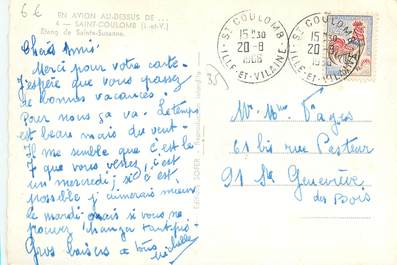 6€
EN AVION AU-DESSUS DE ...
4 — SAINT-COULOMB (I.-et-V.)
Etang de Sainte-Suzanne.
Chers Amis
Merci pour votre carte.
J'espère que vous passez
de bonnes vacances.
Pour nous ça va. Le temps
est beau mais du vent.
Il me semble que c'est le
7 que vous venez, c'est
un mercredi; si c'est
possible j'aimerais mieux
le mardi mais si vous ne
pouvez changer tant pis.
Gros baisers à tous
35
ST COULOMB
15H30
20-8
1966
ILLE-ET-VILAINE
ST COULOMB
15H30
20-8
ILLE-ET-VILAINE
Mr Mme Vages
61 bis rue Pasteur
91 Ste Geneviève
des Bois